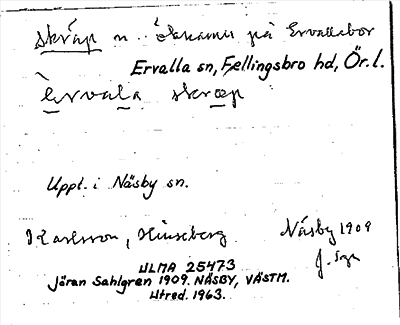 skräp n. öknamn på Ervallabor
Ervalla sn, Fellingsbro hd, Ör. l.
èrvala skræp
Uppt. i Näsby sn.
Karlsson, Hinseberg Näsby 1909
J. Sgn
ULMA 25473
Jöran Sahlgren 1909. NÄSBY, VÄSTM.
Utred. 1963.